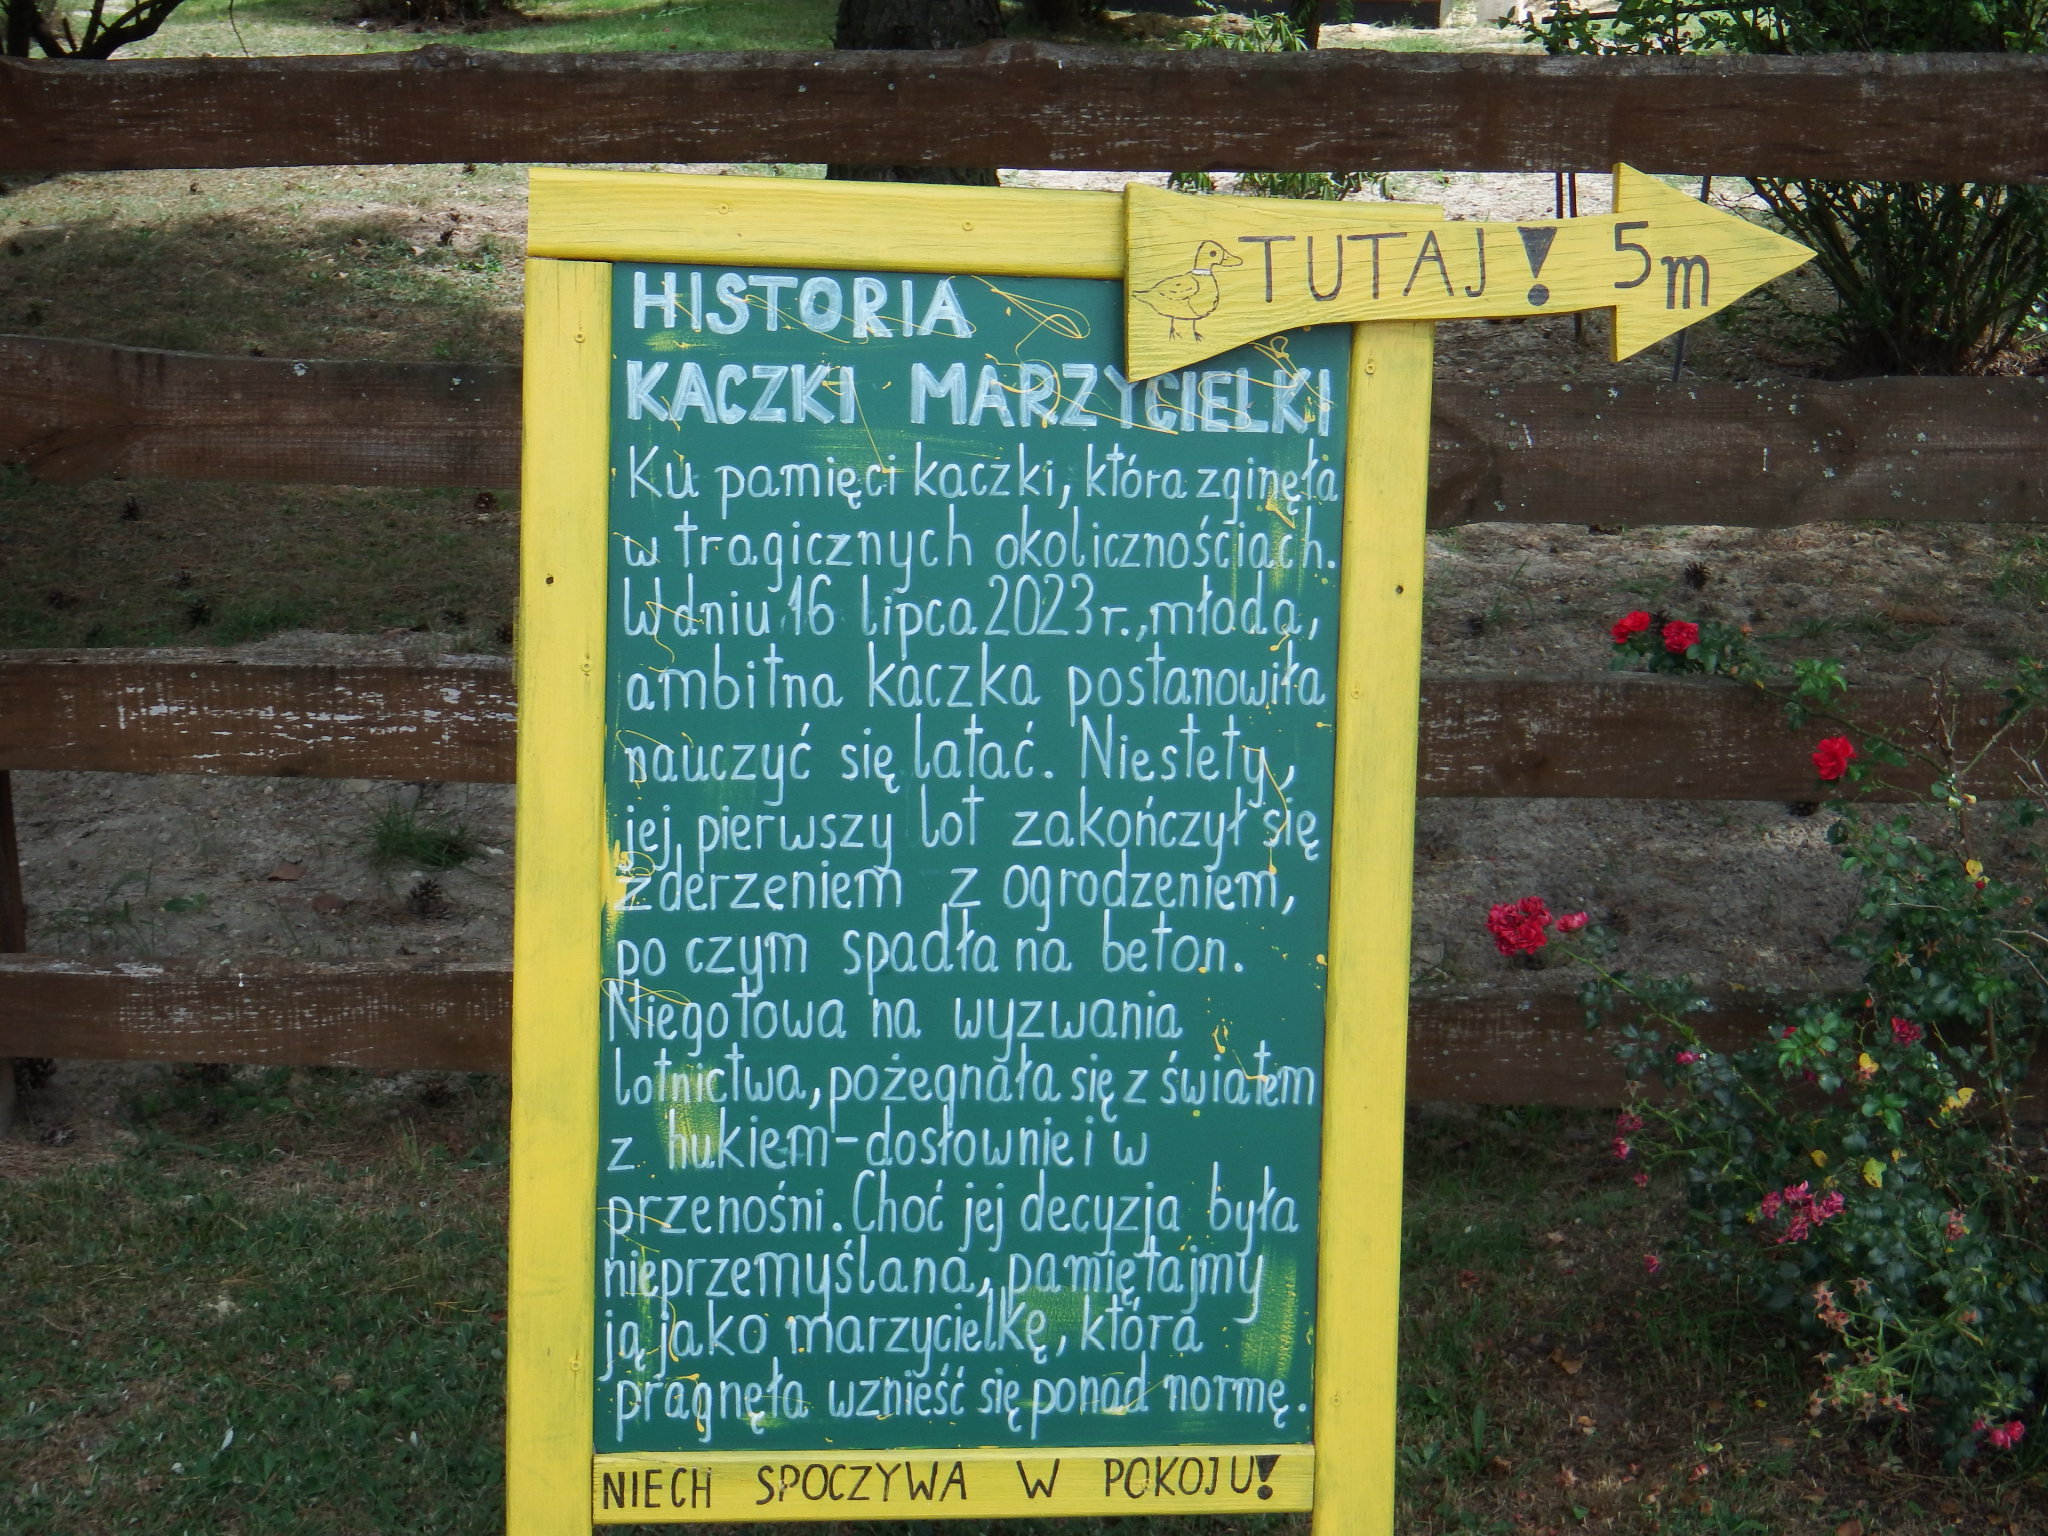 TUTAJ! 5m
HISTORIA
KACZKI MARZYCIELKI
Ku pamięci kaczki, która zginęła
w tragicznych okolicznościach.
W dniu 16 lipca 2023 r., młoda,
ambitna kaczka postanowiła
nauczyć się latać. Niestety,
jej pierwszy lot zakończył się
zderzeniem z ogrodzeniem,
po czym spadła na beton.
Niegotowa na wyzwania
lotnictwa, pożegnała się z światem
z hukiem-dosłownie i w
przenośni. Choć jej decyzja była
nieprzemyślana, pamiętajmy
ją jako marzycielkę, która
pragnęła wznieść się ponad normę.
NIECH SPOCZYWA W POKOJU!